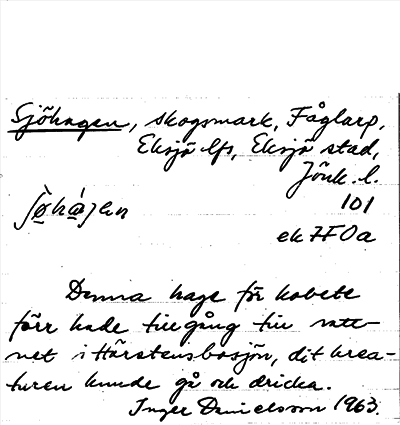 Sjöhagen, skogsmark, Fåglarp,
Eksjö lfs, Eksjö stad,
Jönk. l.
101
ek 7F0a
Denna hage för
förr hade tillgång till vatt-
net i Härstensbosjön, dit krea-
turen kunde gå och dricka.
Inger Danielsson 1963.